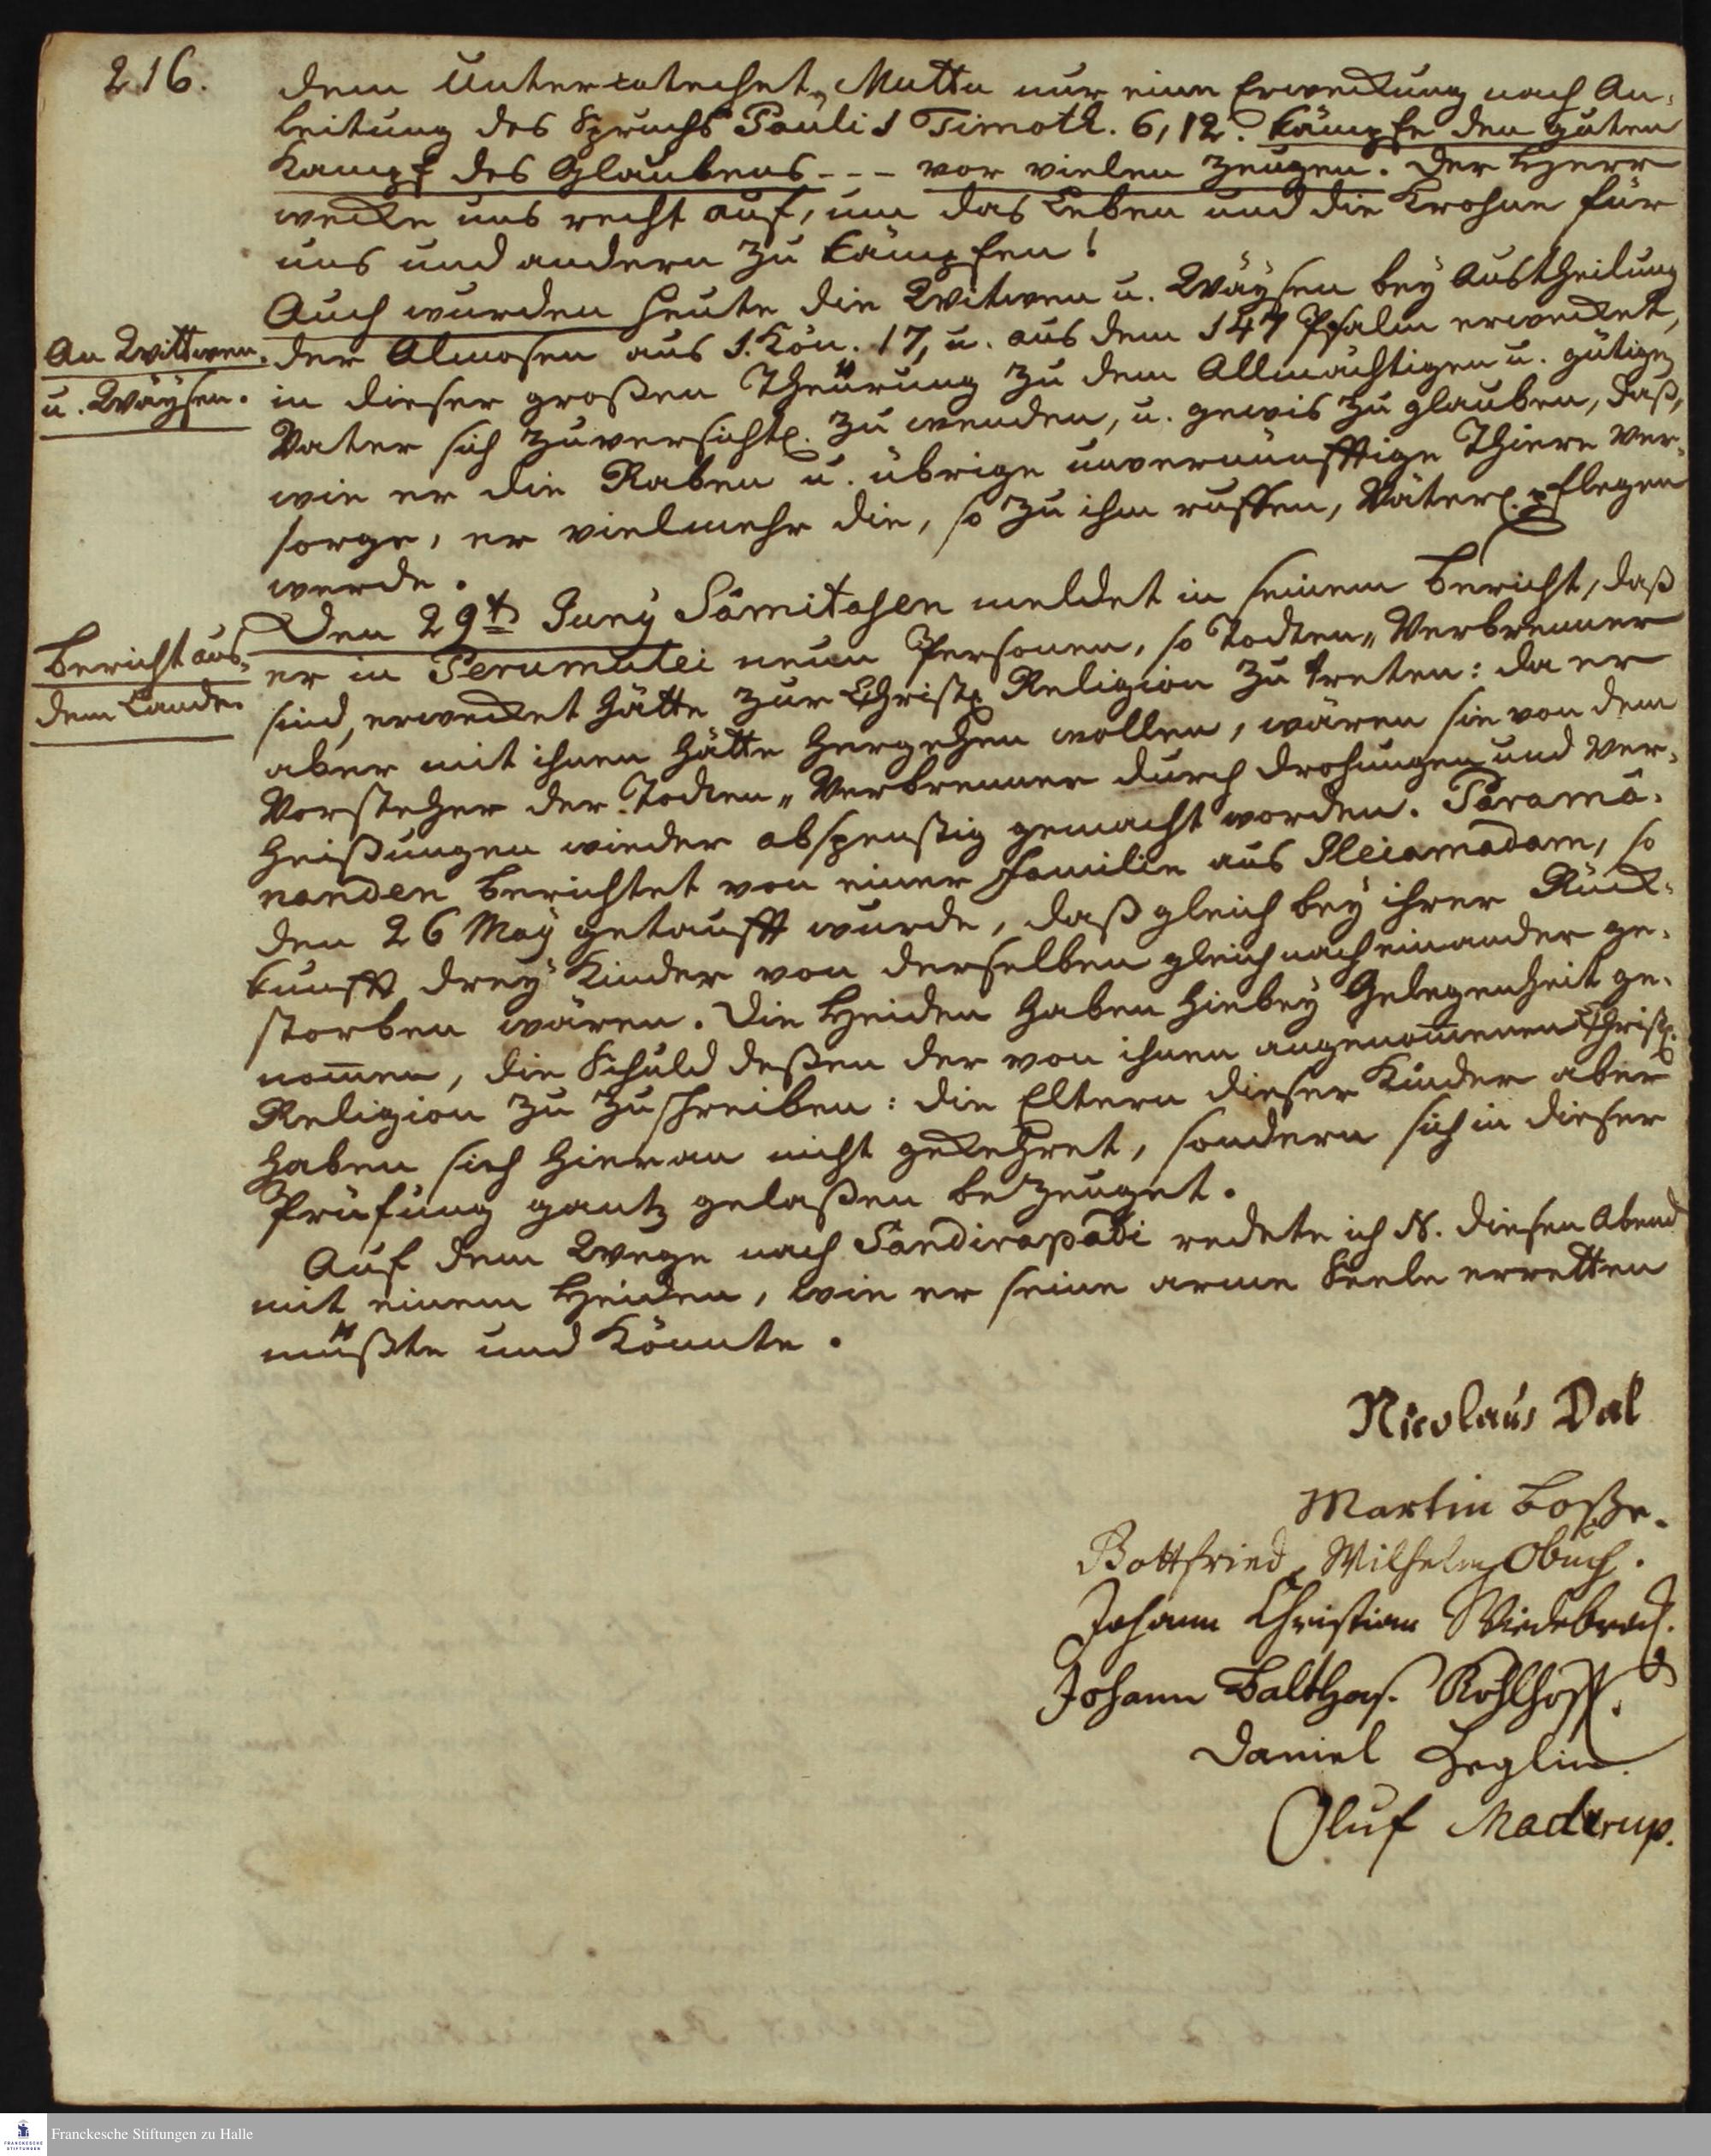 216.
dem Untercatechet, Muttu nur eine Erweckung nach An-
leitung des Spruchs Pauli 1 Timoth. 6,12. Kämpfe den guten
Kampf des Glaubens - - - vor vielen Zeugen. Der Herr
wecke uns recht auf, um das Leben und die Krohne für
uns und andern zu kämpfen!
Auch wurden heute die Witwen u. Wäysen bey Austheilung
An Wittwen
der Almosen aus 1. Kön. 17, u. aus dem 147 Psalm erwecket,
u. Wäysen.
in dieser großen Theürung zu dem Allmächtigen u. gütigen
Vater sich zuversichtl. zu wenden, u. gewis zu glauben, daß,
wie er die Raben u. übrige unvernünfftige Thiere ver-
sorge, er vielmehr die, so zu ihm ruffen, Väterl. pflegen
werde.
Den 29t Juny Sâmitasen meldet in seinem Bericht, daß
Bericht aus
er in Perumulei neun Personen, so Todten-Verbrenner
dem Lande.
sind, erwecket hätte zur Christl. Religion zu treten: da er
aber mit ihnen hätte hergehen wollen, wären sie von dem
Vorsteher der Todten-Verbrenner durch Drohungen und Ver-
heißungen wieder abspenstig gemacht worden. Paramâ-
nanden berichtet von einer Familie aus Pleiamadam, so
den 26 May getaufft wurde, daß gleich bey ihrer Rück-
kunfft drey Kinder von derselben gleich nach einander ge-
storben wären. Die Heiden haben hiebey Gelegenheit ge-
nom̄en, die Schuld deßen der von ihnen angenom̄enen Christl.
Religion zu zuschreiben: die Eltern dieser Kinder aber
haben sich hieran nicht gekehret, sondern sich in dieser
Prüfung gantz gelaßen bezeuget.
Auf dem Wege nach Sandirapâdi redete ich N. diesen Abend
mit einem Heiden, wie er seine arme Seele erretten
müßte und könnte.
Nicolaus Dal
Martin Boße.
Gottfried Wilhelm Obuch.
Johann Christian Wiedebrock.
Johann Balthas. Kohlhoff.
Daniel Zeglin.
Oluf Maderup.
FRANCKESCHE STIFTUNGEN
Franckesche Stiftungen zu Halle